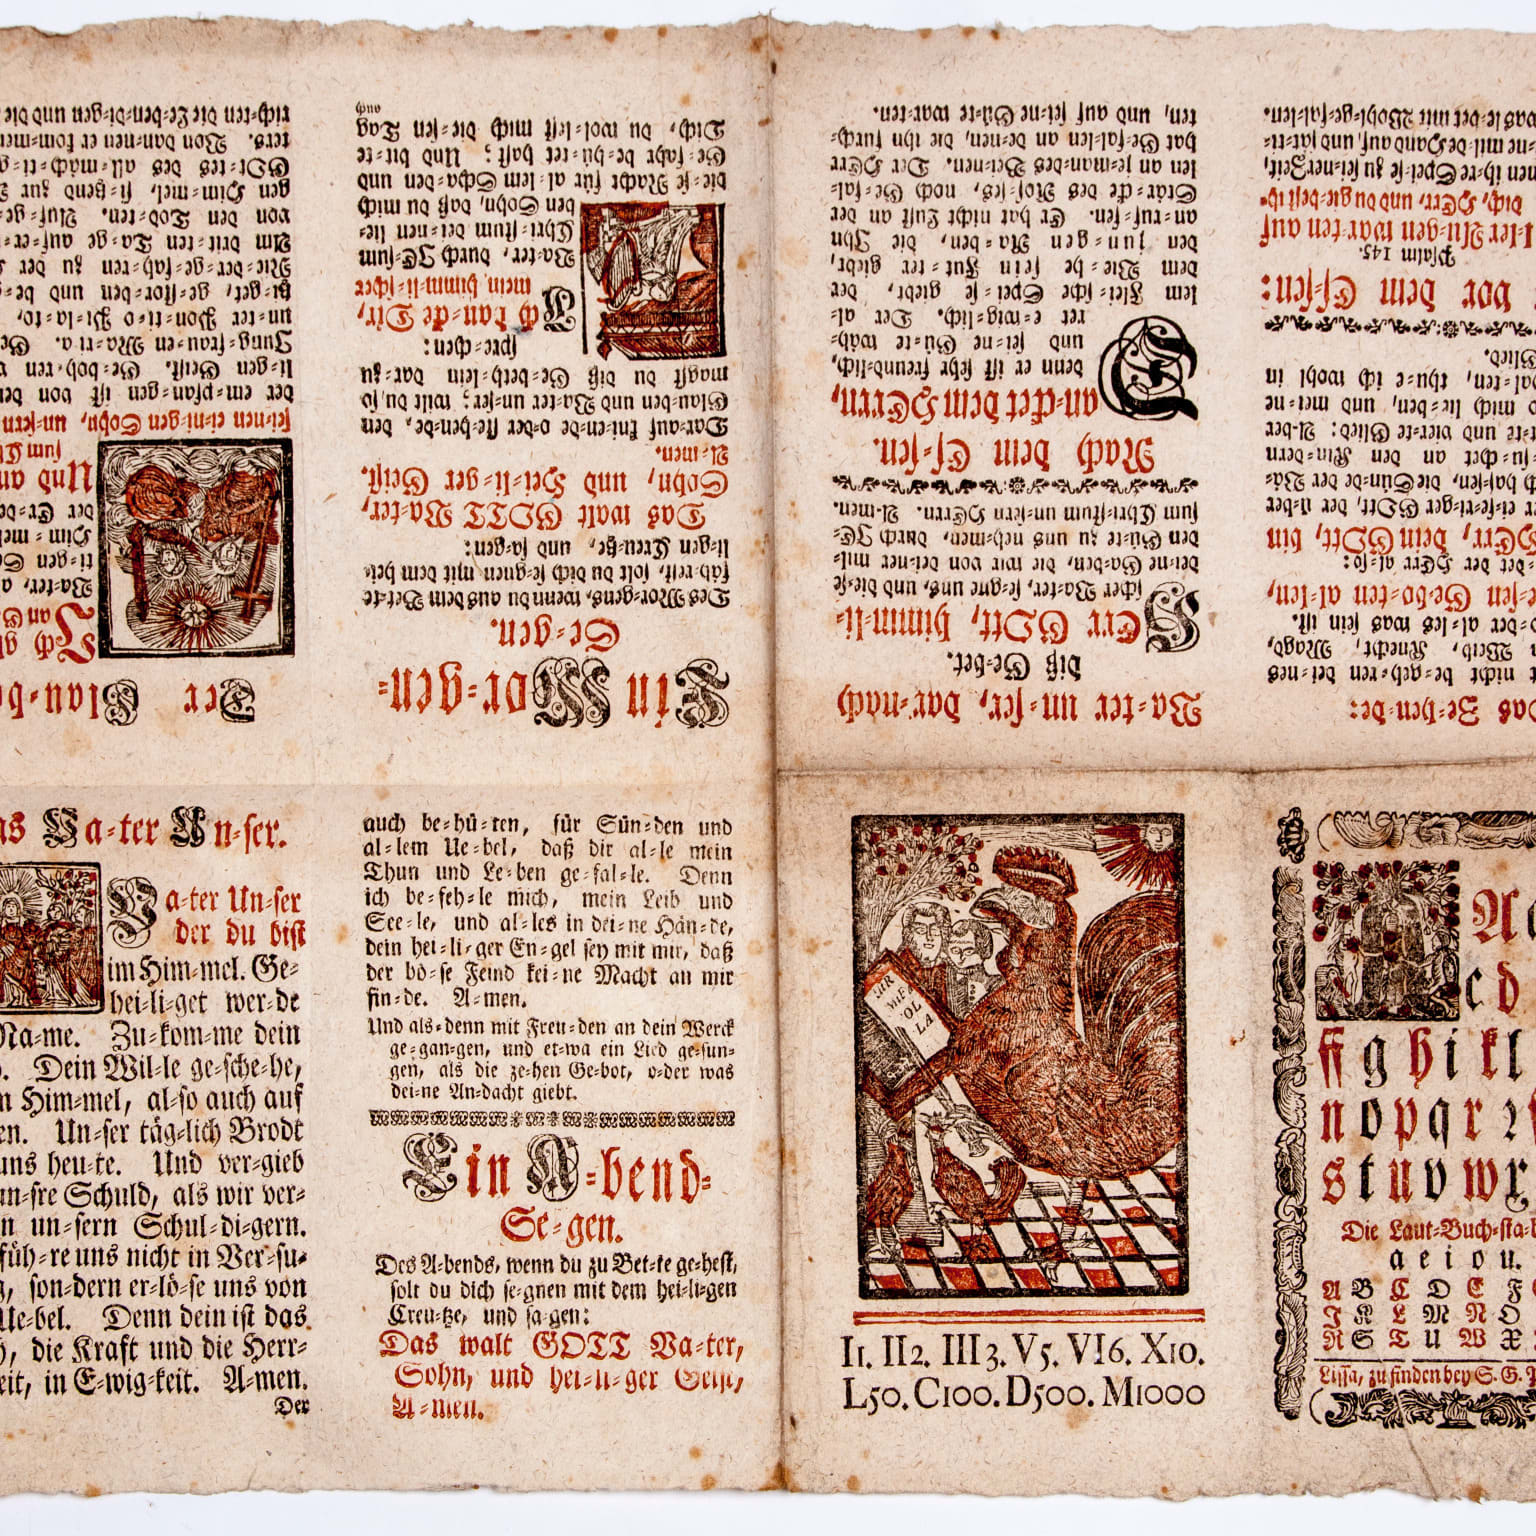 Der Glau=b
Jch gl
an G
Va=ter, a
ti=gen S
Him=mel
der Er=de
Und an
sum Ch
sei=nen ei=ni=gen Sohn, un=sern
der em=pfan=gen ist von de
li=gen Geist. Ge=boh=ren v
Jung=frau=en Ma=ri=a. Ge
un=ter Pon=ti=o Pi=la=to,
tzi=get, ge=stor=ben und be=g
Nie=der=ge=fah=ren zu der
Am drit=ten Ta=ge auf=er=
von den Tod=ten. Auf=ge=
gen Him=mel, si=tzend zur
GOt=tes des all=mäch=ti=g
ters. Von dan=nen er kom=men
rich=ten die Le=ben=di=gen und die
Ein Mor=gen=
Se=gen.
Des Mor=gens, wenn du aus dem Bet=te
fäh=rest, solt du dich se=gnen mit dem hei=
li=gen Creu=tze, und sa=gen:
Das walt GOTT Va=ter,
Sohn, und Hei=li=ger Geist.
A=men.
Dar=auf kni=en=de o=der ste=hen=de, den
Glau=ben und Va=ter un=ser; wilt du, so
magst du diß Ge=beth=lein dar=zu
spre=chen:
Jch dan=cke Dir,
mein himm=li=scher
Va=ter, durch JE=sum
Chri=stum dei=nen lie=
ben Sohn, daß du mich
die=se Nacht für al=lem Scha=den und
Ge=fahr be=hü=tet hast; Und bit=te
Dich, du wol=lest mich die=sen Tag
auch
Va=ter un=ser, dar=nach
diß Ge=bet.
HErr GOtt, himm=li=
scher Va=ter, se=gne uns, und die=se
dei=ne Ga=ben, die wir von dei=ner mil=
den Gü=te zu uns neh=men, durch JE=
sum Chri=stum un=sern HErrn. A=men.
Nach dem Es=sen.
Dan=cket dem HErrn,
denn er ist sehr freund=lich,
und sei=ne Gü=te wäh=
ret e=wig=lich. Der al=
lem Flei=sche Spei=se giebt, der
dem Vie=he sein Fut=ter giebt,
den jun=gen Ra=ben, die Jhn
an=ruf=fen. Er hat nicht Lust an der
Stär=cke des Ros=ses, noch Ge=fal=
len an je=man=des Bei=nen. Der HErr
hat Ge=fal=len an de=nen, die ihn fürch=
ten, und auf sei=ne Gü=te war=ten.
Das Ze=hen=de:
t nicht be=geh=ren dei=nes
n Weib, Knecht, Magd,
o=der al=les was sein ist.
e=sen Ge=bo=ten al=len,
=det der HErr al=so:
HErr, dein GOtt, bin
er ei=fe=ri=ger GOtt, der ü=ber
h has=sen, die Sün=de der Vä=
=su=chet an den Kin=dern
=te und vier=te Glied: A=ber
o mich lie=ben, und mei=ne
al=ten, thu=e ich wohl in
Glied.
vor dem Es=sen:
Psalm 145.
l=ler Au=gen war=ten auf
dich, HErr, und du gie=best ih=
nen ih=re Spei=se zu sei=ner Zeit,
=ne mil=de Hand auf, und sät=ti=
was le=bet mit Wohl=ge=fal=len.
as Va=ter Un=ser.
Va=ter Un=ser
der du bist
im Him=mel. Ge=
hei=li=get wer=de
Na=me. Zu=kom=me dein
. Dein Wil=le ge=sche=he,
m Him=mel, al=so auch auf
en. Un=ser täg=lich Brodt
uns heu=te. Und ver=gieb
un=sre Schuld, als wir ver=
n un=sern Schul=di=gern.
füh=re uns nicht in Ver=su=
g, son=dern er=lö=se uns von
Ue=bel. Denn dein ist das
h, die Kraft und die Herr=
eit, in E=wig=keit. A=men.
Der
auch be=hü=ten, für Sün=den und
al=lem Ue=bel, daß dir al=le mein
Thun und Le=ben ge=fal=le. Denn
ich be=feh=le mich, mein Leib und
See=le, und al=les in dei=ne Hän=de,
dein hei=li=ger En=gel sey mit mir, daß
der bö=se Feind kei=ne Macht an mir
fin=de. A=men.
Und als=denn mit Freu=den an dein Werck
ge=gan=gen, und et=wa ein Lied ge=sun=
gen, als die ze=hen Ge=bot, o=der was
dei=ne An=dacht giebt.
Ein A=bend=
Se=gen.
Des A=bends, wenn du zu Bet=te ge=hest,
solt du dich se=gnen mit dem hei=li=gen
Creu=tze, und sa=gen:
Das walt GOTT Va=ter,
Sohn, und hei=li=ger Geist,
A=men.
UR
MI F
OL
LA
I1. II2. III3. V5. VI6. X10.
L50. C100. D500. M1000
A a
c d
ff g h i k l
n o p q r ꝛ s
s t u v w x
Die Laut=Buch=sta=b
a e i o u.
A B C D E F G
J K L M N O
R S T U W X
Lissa, zu finden bey S. G. P